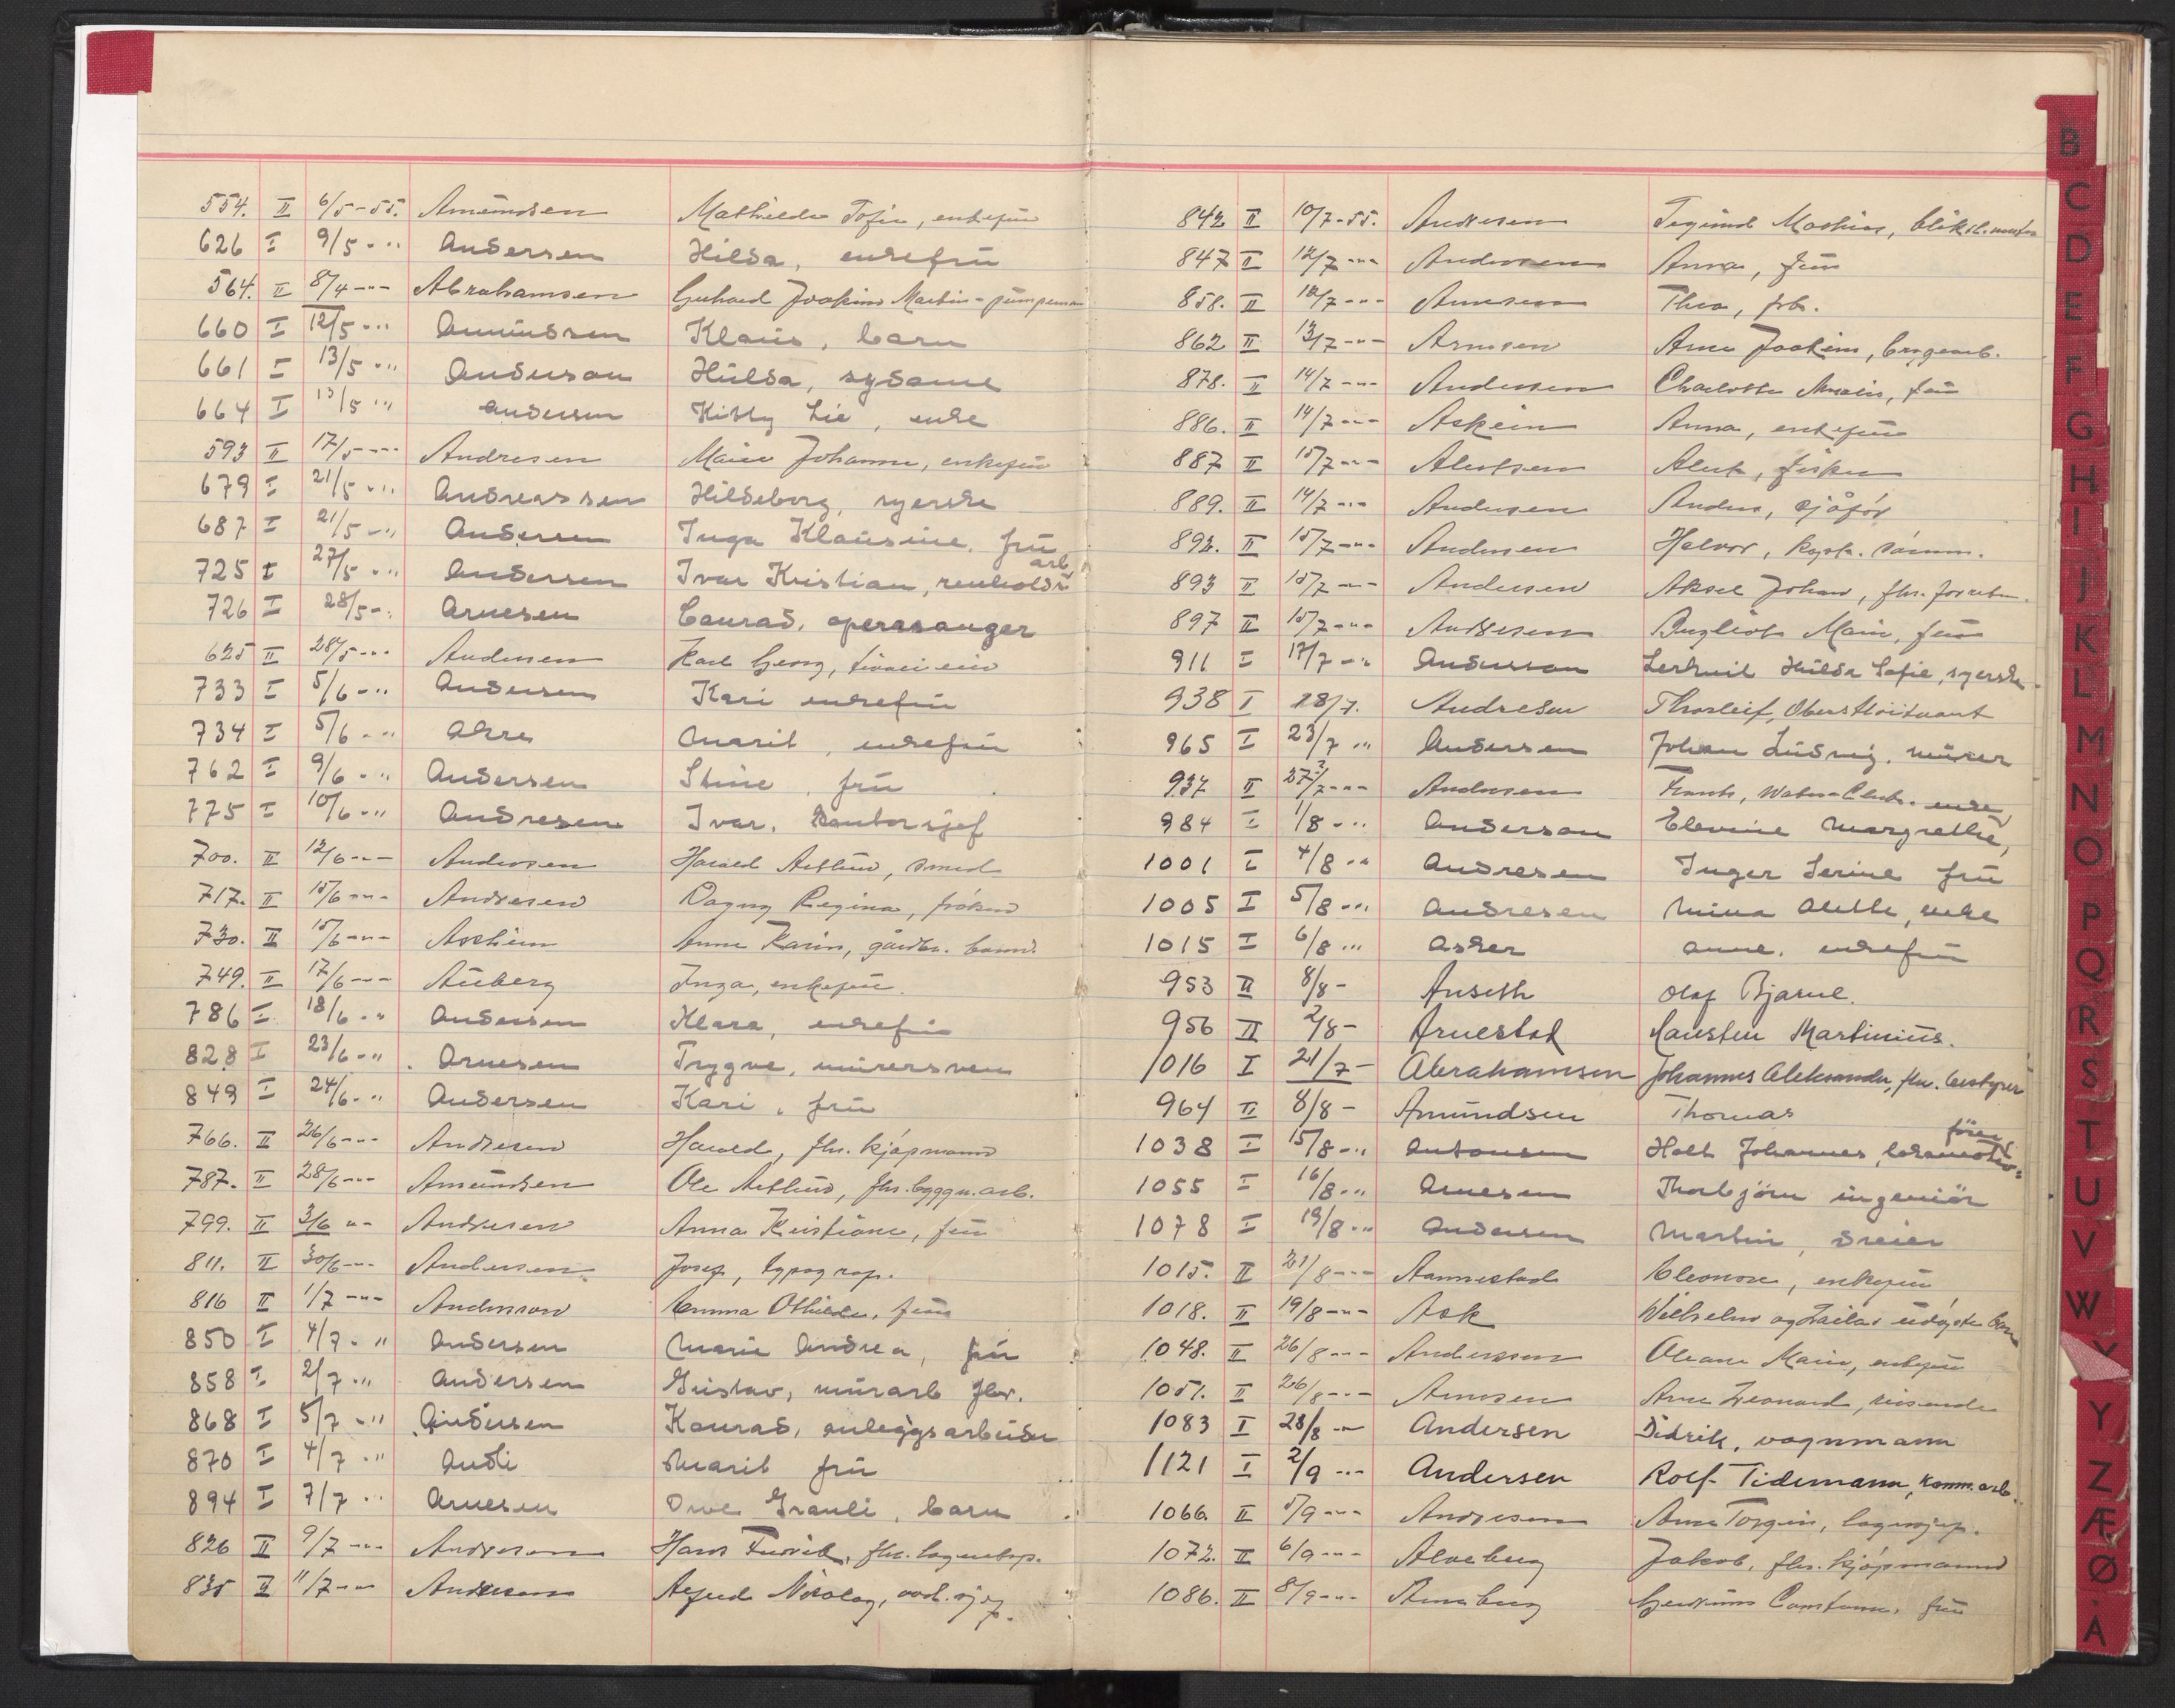 554. II 6/5-55. Amundsen Mathilde Sofie, enkefrü
626 I 9/5 - " Andersen Hilda, enkefrü
564. II 8/4 -"- Abrahamsen Gerhard Joakim Martin - pumpeman
660 I 12/5 -" Amündsen Klaus, barn
661 I 13/5 -" Anderson Hülda, sydame
664 I 13/5 " Andersen Kitty Lie, enke
593 II 17/5 -"- Andresen Marie Johanne, enkefrü
679 I 21/5 -" Andreassen Hildeborg, syerske
687 I 21/5 -" Andersen Inga Klaüsine, frü
725 I 27/5 -" Andersen Ivar Kristian, renholds arb.
726 I 28/5 -" Arnesen Conrad, operasanger
625 II 28/5 -"- Andersen Karl Georg,
733 I 5/6 -" Andersen Kari enkefrü
734 I 5/6 -" Marit, enkefrü
762 I 9/6 -" Andersen Stine, frü
775 I 10/6 -" Andresen Ivar, kontorsjef
700. II 12/6 -"- Andersen Harald Astlund, smed
717. II 15/6 -"- Andresen Dagny Regina, frøken
730. II 15/6 -"- Anne Karin, gårdbr.
749. II 17/6 -"- Aüberg Inga, enkefrü.
786 I 18/6 -" Andersen Klara, enkefrü
828 I 23/6 -" Arnesen Trygve, mürersven
849 I 24/6 -" Andersen Kari, frü
766. II 26/6 -"- Andresen Harald, fhv. kjøpmann
787. II 28/6 -"- Amündsen Ole fhv. byggn.arb.
799. II 3/6 "- Andresen Anna Kristiane, frü
811. II 30/6 -"- Andersen Josef, typograf.
816 II 1/7 -"- Anderson Emma Othilde, frü
850 I 4/7 - " Andersen Marie Andrea, frü
858 I 2/7 -" Andersen Güstav, mürarb fhv.
868 I 5/7 -" Andersen Konrad, anleggsarbeider
870 I 4/7 -" Marit frü
894 I 7/7 -" Arnesen Ove Granli, barn
826 II 9/7 -"- Andresen Hans Fredrik, fhv. lagerbap.
835 II 11/7 -"- Andersen Alfred Nicolay, avd.sjef.
842 II 10/7-55. Andresen Sigurd Mathias,
847 II 12/7 -"- Andersen Anna, frü
858. II 12/7 -"- Arnesen Thea, frk.
862 II 13/7 -"- Arnesen Arne Joakim, bryggearb.
878. II 14/7 -"- Andersen Charlotte Amalie, frü
886. II 14/7 -"- Askeim Anna, enkefrü
887 II 15/7 -"- Albertsen fisker
889. II 14/7 -"- Andersen Anders, sjåfør
892. II 15/7 -"- Andersen Halvor,
893 II 15/7 -"- Andersen Aksel Johan, fhv.
897 II 15/7 -"- Andresen Bergliot Marie, frü
911 I 17/7 -" Anderson Hülda Sofie, syerske
938 I 18/7. Andresen Thorleif, Oberstløitnant
965 I 23/7 " Andersen Johan Lüdvig, mürer
937 II 27/7 -"- Andresen
984 I 1/8 -" Anderson Elevine Margrethe, enke
1001 I 4/8 -" Andresen Inger Serine frü
1005 I 5/8 -" Andresen Mina Alette, enke
1015 I 6/8 " Asker Anne, enkefrü
953 II 8/8 - Anseth Olaf Bjarne.
956 II 2/8 - Arnestad Martiniüs.
1016 I 21/7 - Abrahamsen Johannes Aleksander, fhv. bestyrer
964 II 8/8 - Amündsen Thomas
1038 I 15/8 -" Antonsen Holt Johannes, lokomotiv- fører
1055 I 16/8 -" Arnesen Thorbjørn ingeniør
1078 I 19/8 -" Andersen Martin, dreier
1015. II 21/8 -"- Aannestad Eleonore, enkefrü
1018. II 19/8 -"- Ask Wilhelm og Lailas üdøpte barn
1048. II 26/8 -"- Anderssen Oleane Marie, enkefrü
1051. II 26/8 -"- Arnesen Arne Leonard, reisende
1083 I 28/8 -" Andersen Didrik, vognmann
1121 I 2/9 -" Andersen Rolf Tidemann, komm.arb.
1066. II 5/9 -"- Andresen Arne Torgeir, lagersjef.
1072. II 6/9 -"- Alveberg Jakob, fhv. kjøpmann
1086. II 8/9 -"- Arneberg Constance, frü
B
C
D
E
F
G
H
I
J
K
L
M
N
O
P
Q
R
S
T
U
V
W
Y
Z
Æ
Ø
Å